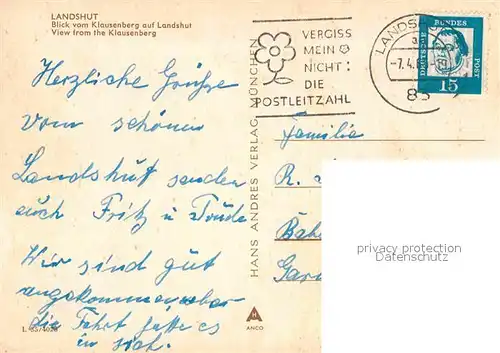 LANDSHUT
Blick vom Klausenberg auf Landshut
View from the Klausenberg
Herzliche Grüße
vom schönen
Landshut senden
euch Fritz u Trude
Wir sind gut
angekommen, aber
die Fahrt hatte es
in sich.
HANS ANDRES VERLAG MÜNCHEN
VERGISS
MEIN
NICHT:
DIE
POSTLEITZAHL
LANDSH
-7.4.
83
DEUTSCHE BUNDES
POST
15
Familie
R.
Gar
privacy protection
Datenschutz
H
ANCO